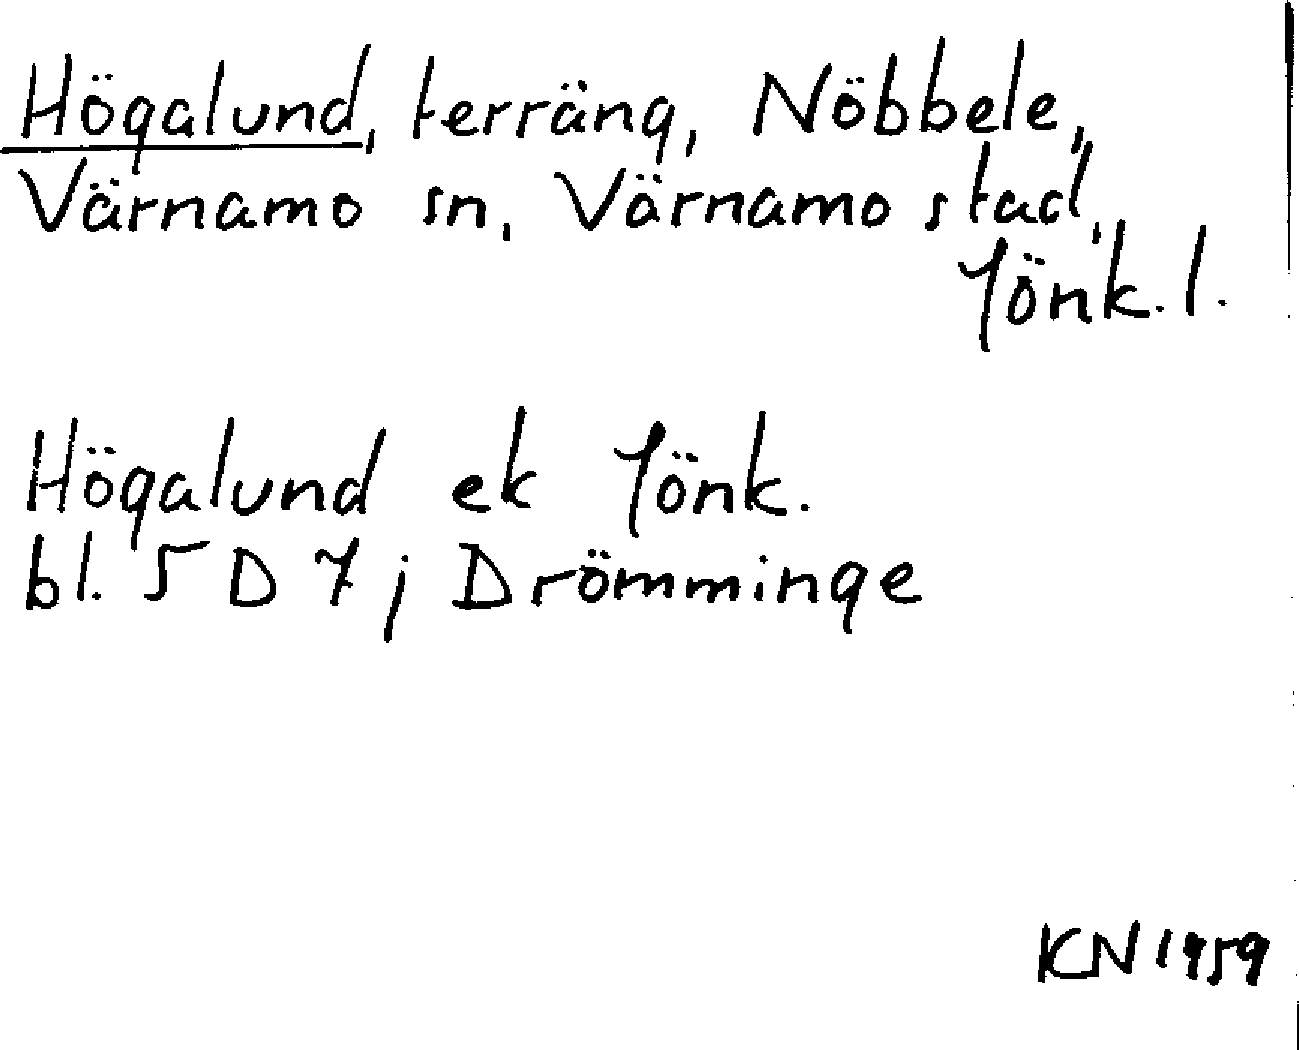 Högalund, terräng, Nöbbele,
Värnamo sn, Värnamo stad,
Jönk. l.
Högalund ek Jönk.
bl. 5 D 7 j Drömminge
KN 1959